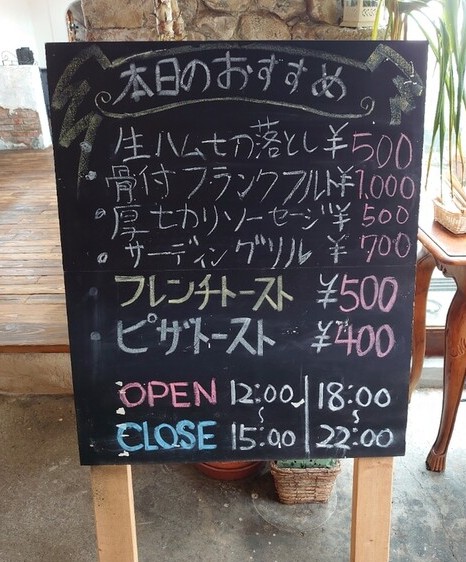 本日のおすすめ
生ハム七刀落とし ¥500
・骨付フランクフルト ¥1.000
・厚七刀リソーセージ ¥500
サーディングリル ¥700
フレンチトースト ¥500
ピザトースト ¥400
OPEN 12:00 18:00
~ ~
CLOSE 15:00 22:00